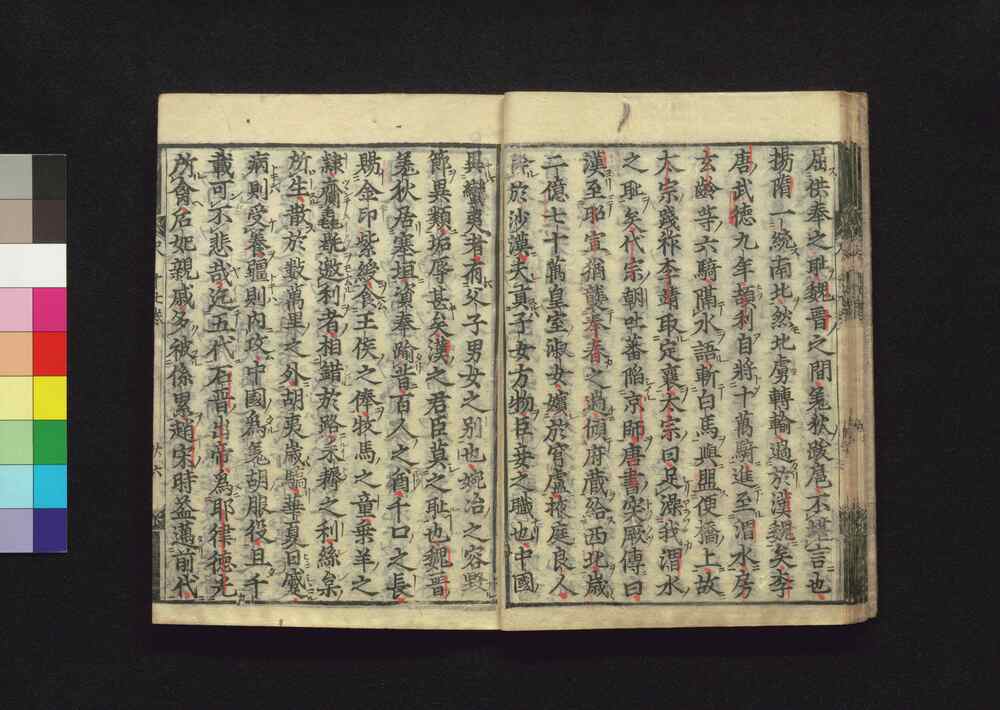 屈供奉之耻魏晉之間羗狄驕扈不堪言也
揚隋一統南北然北虜轉輸過於漢魏矣李
唐武德九年頡利自將十萬騎進至渭水房
玄齡等六騎隔水語斬白馬與盟便橋上故
太宗踐祚李靖取定襄太宗曰足澡我渭水
之耻矣代宗朝吐蕃陷京師唐書突厥傳曰
漢至耶宣猶襲奉春之過傾府藏給西北歲
二億七十萬皇室淑女嬪於穹廬掖庭良人
於沙漠夫貢子女方物臣妾之職也中國
異蠻夷者有父子男女之別也婉冶之容毀
節異類垢辱甚矣漢之君臣莫之耻也魏晉
羗狄居塞垣資奉踰昔百人之酋千口之長
賜金印紫綬食王侯之俸牧馬之童乘羊之
隷齎毳毼邀利者相錯於路耒耨之利絲枲
所生散於數萬里之外胡夷歲驕華夏日蹙
病則受養疆則內攻中國爲羗胡服役且千
載可不悲哉迄五代石晉出帝爲耶律德光
所會后妃親戚多被係累趙宋時益邁前代